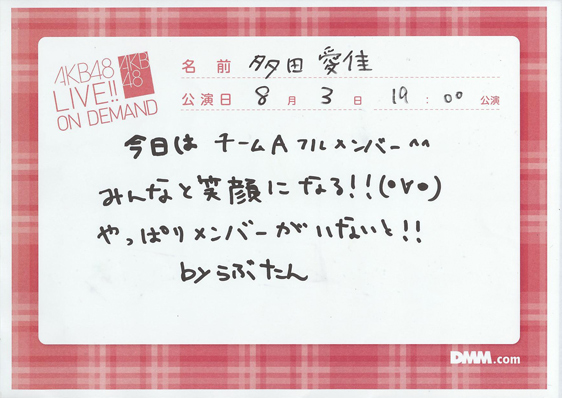 AKB48
LIVE!!
ON DEMAND
AKB
48
名前 多田 愛佳
公演日 8月 3日 19:00 公演
今日は チームA フルメンバー^^
みんなと笑顔になる!!(•v•)
やっぱりメンバーがいないと!!
byらぶたん
DMM.com